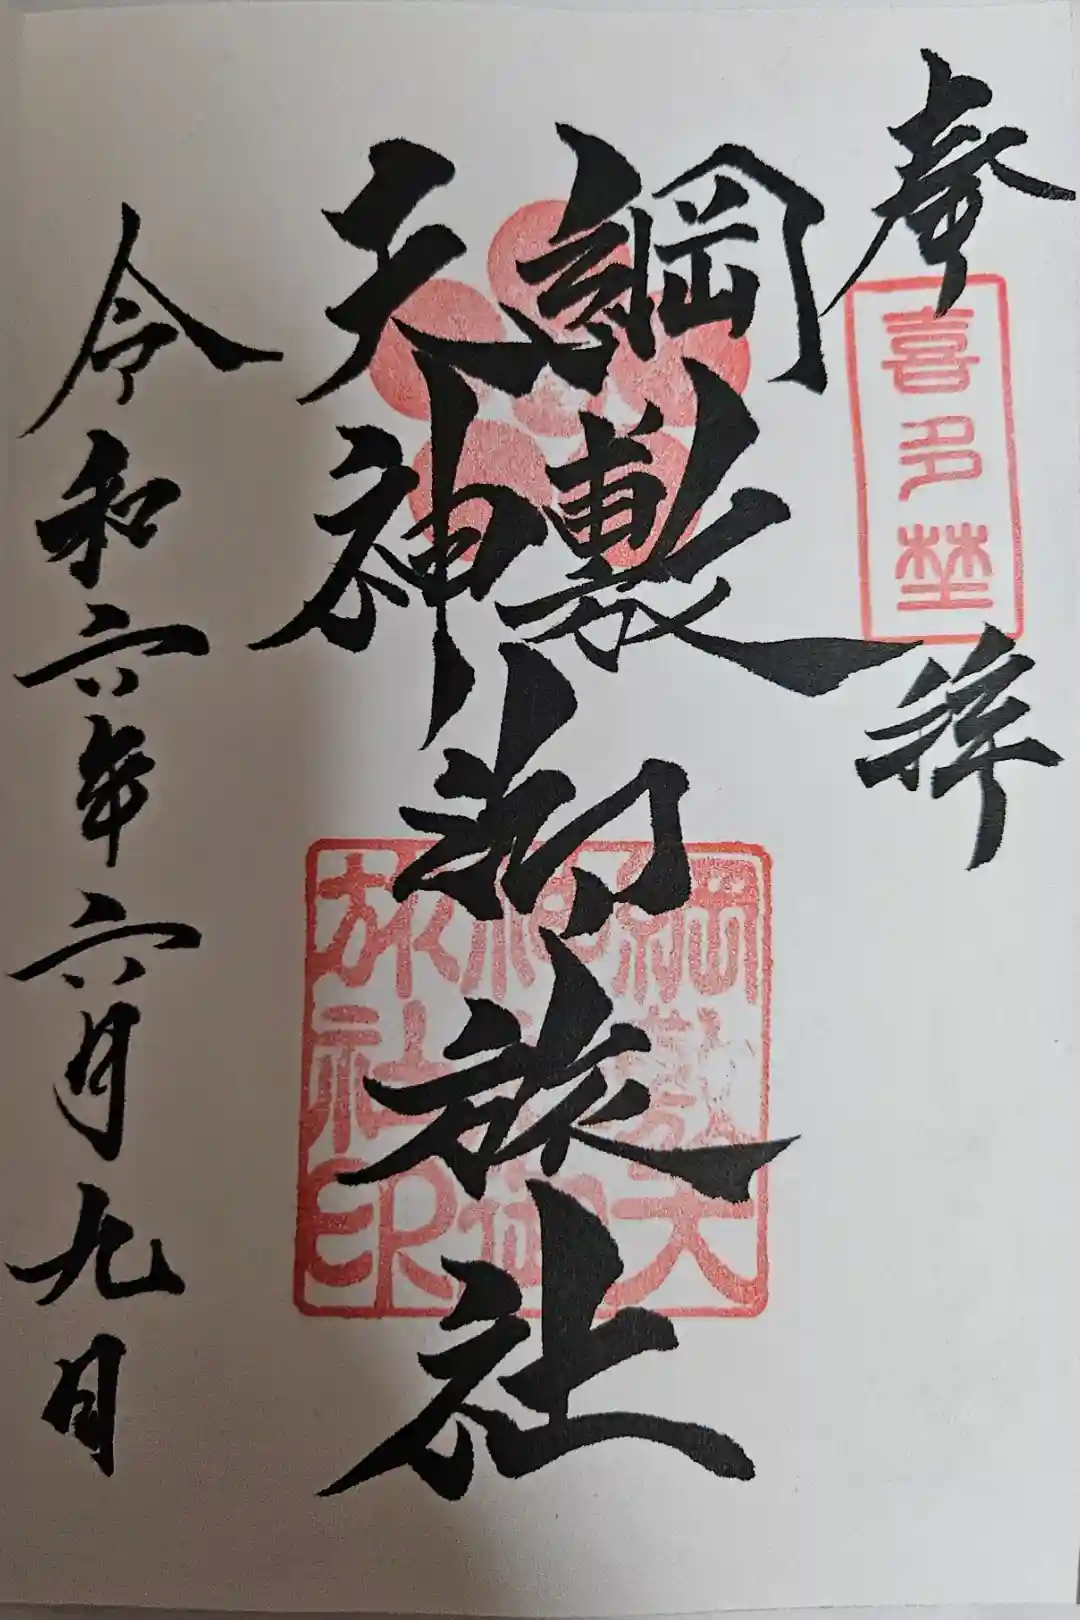 奉拝
喜多埜
綱敷
天神
御旅社
綱敷天
旅社印
令和六年六月九日